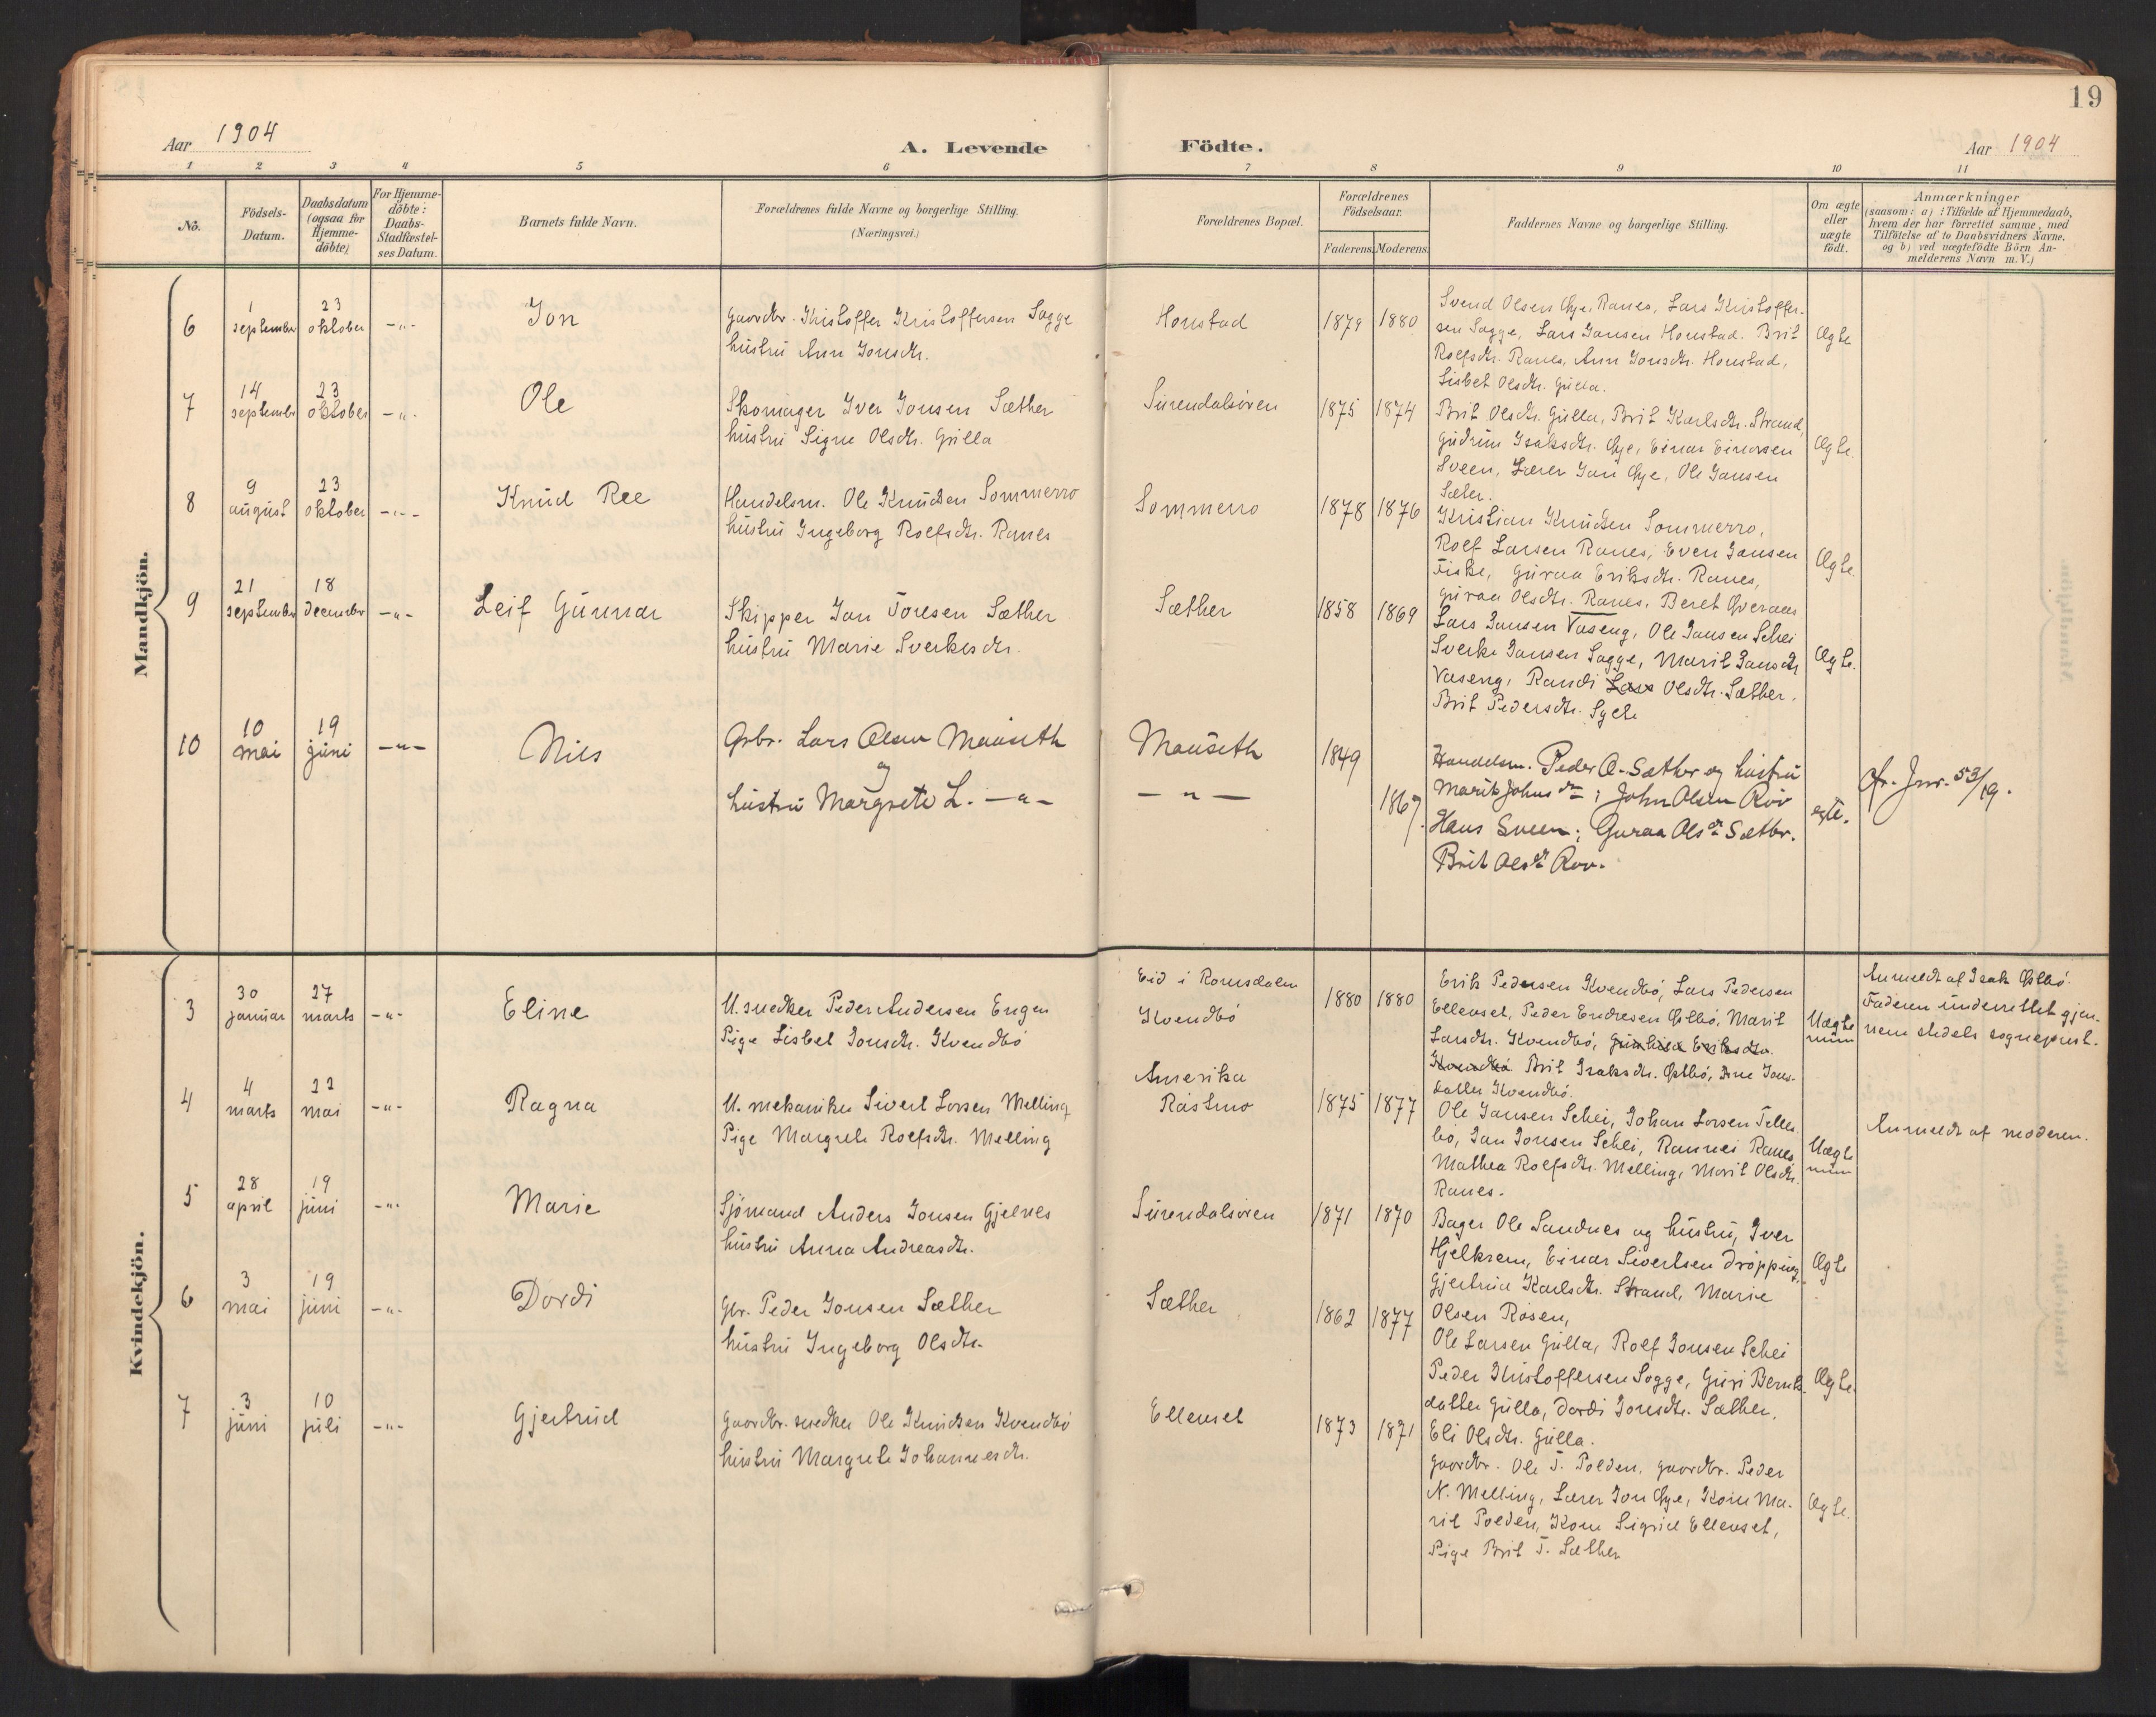 19
Aar 1904
A. Levende
Födte.
Aar 1904
1 2 3 4 5 6 7 8 9 10 11
No.
Födsels-
Datum.
Daabsdatum
(ogsaa for
Hjemme-
döbte)
For Hjemme-
döbte:
Daabs-
Stadfæstel-
ses Datum.
Barnets fulde Navn.
Forældrenes fulde Navne og borgerlige Stilling.
(Næringsvei.)
Forældrenes Bopæl.
Forældrenes
Födselsaar.
Faderens Moderens
Faddernes Navne og borgerlige Stilling.
Om ægte
eller
uægte
födt.
Anmærkninger
(saasom: a) i Tilfælde af Hjemmedaab,
hvem der har forrettet samme, med
Tilföielse af to Daabsvidners Navne.
og b) ved uægtefödte Börn An-
melderens Navn m. V.)
Mandkjön.
6
1
september
23
oktober
-„-
Jon
gaardbr. Kristoffer Kristoffersen Sogge
hustru Ann Jonsdtr.
Honstad
1879 1880
Svend Olsen Øye, Ranes, Lars Kristoffer-
sen Sogge, Lars Jansen Honstad. Brit
Rolfsdtr. Ranes, Ann Jonsdtr. Honstad,
Lisbet Olsdtr. Gulla.
Ægte
7
14
septembr
23
oktober
-„-
Ole
Skomager Iver Jonsen Sæther
hustru Signe Olsdtr. Gulla
Surendalsøren
1875 1874
Brit Olsdtr. Gulla, Brit Karlsdtr. Strand,
Gudrun Isaksdtr. Øye, Einar Einarsen
Sveen, Lærer Jon Øye, Ole Jansen
Sæter.
Ægte.
8
9
august
23
oktober
-„-
Knud Ree
Handelsm. Ole Knudsen Sommerro
hustru Ingeborg Rolfsdtr. Ranes
Sommerro
1878 1876
Kristian Knudsen Sommerro,
Rolf Larsen Ranes, Even Jansen
Fiske, Guraa Eriksdtr. Ranes,
Guraa Olsdtr. Ranes, Beret
Ægte.
9
21
september
18
december
-„-
Leif Gunnar
Skipper Jon Tøresen Sæther
hustru Marie Sverkesdtr.
Sæther
1858 1869
Lars Jansen Vaseng, Ole Jansen Schei
Sverke Jansen Sogge, Marit Jansdtr
Vaseng, Randi Lars Olsdtr. Sæther.
Brit Pedersdtr. Sylte
Ægte.
10
10
mai
19
juni
-„-
Nils
Gbr. Lars Olsen Mauseth
og
hustru Margrete L. -„-
Mauseth
-„-
1849
1867.
Handelsm. Peder O. Sæther og hustru
Marit Johnsdtr; John Olsen Røv
Hans Sveen; Guraa Olsdtr Sæthr.
Brit Olsdtr Røv.
egte.
Cfr. Jnr. 53/19.
Kvindekjön.
3
30
januar
27
marts
-„-
Eline
U. snedker Peder Andersen Engen
Pige Lisbet Jonsdtr. Kvendbø
Eid i Romsdalen
Kvendbø
1880 1880
Erik Pedersen Kvendbø, Lars Pedersen
Ellenset, Peder Endresen Østbø, Marit
Larsdtr. Kvendbø, Gunhild Eriksdtr.
Kvendbø Brit Isaksdtr. Østbø, Ane Jons-
datter Kvendbø.
Uægte
Anmeldt af Isak Østbø.
Faderen underrettet gjen-
nem stedets sogneprest.
4
4
marts
22
mai
-„-
Ragna
U. mekaniker Sivert Larsen Melling
Pige Margrete Rolfsdtr. Melling
Amerika
Røstmo
1875 1877
Ole Jansen Schei, Johan Larsen Telles
bø, Jon Jonsen Schei, Rannei Ranes
Mathea Rolfsdtr. Melling, Marit Olsdtr.
Ranes.
Uægte
Anmeldt af moderen.
5
28
april
19
juni
-„-
Marie
Sjømand Anders Jonsen Gjelnes
hustru Anna Andreasdtr.
Surendalsøren
1871 1870
Bager Ole Sandnes og hustru, Iver
Hjelkrem, Einar Sivertsen Drøpping,
Gjertrud Karlsdtr. Strand, Marie
Olsen Røsen,
Ægte
6
3
mai
19
juni
-„-
Dordi
Gbr. Peder Jonsen Sæther
hustru Ingeborg Olsdtr.
Sæther
1862 1877
Ole Larsen Gulla, Rolf Jonsen Schei
Peder Kristoffersen Sogge, Guri Bernts-
datter Gulla, Dordi Jonsdtr. Sæther,
Eli Olsdtr. Gulla.
Ægte.
7
3
juni
10
juli
-„-
Gjertrud
gaardbr. snedker Ole Knudsen Kvendbø
hustru Margrete Johannesdtr.
Ellenset
1873 1871
gaardbr. Ole T. Polden, gaardbr. Peder
N. Melling, Lærer Jon Øye, Kone Ma-
rit Polden, Kone Sigrid Ellenset,
Pige Brit T. Sæther
Ægte.